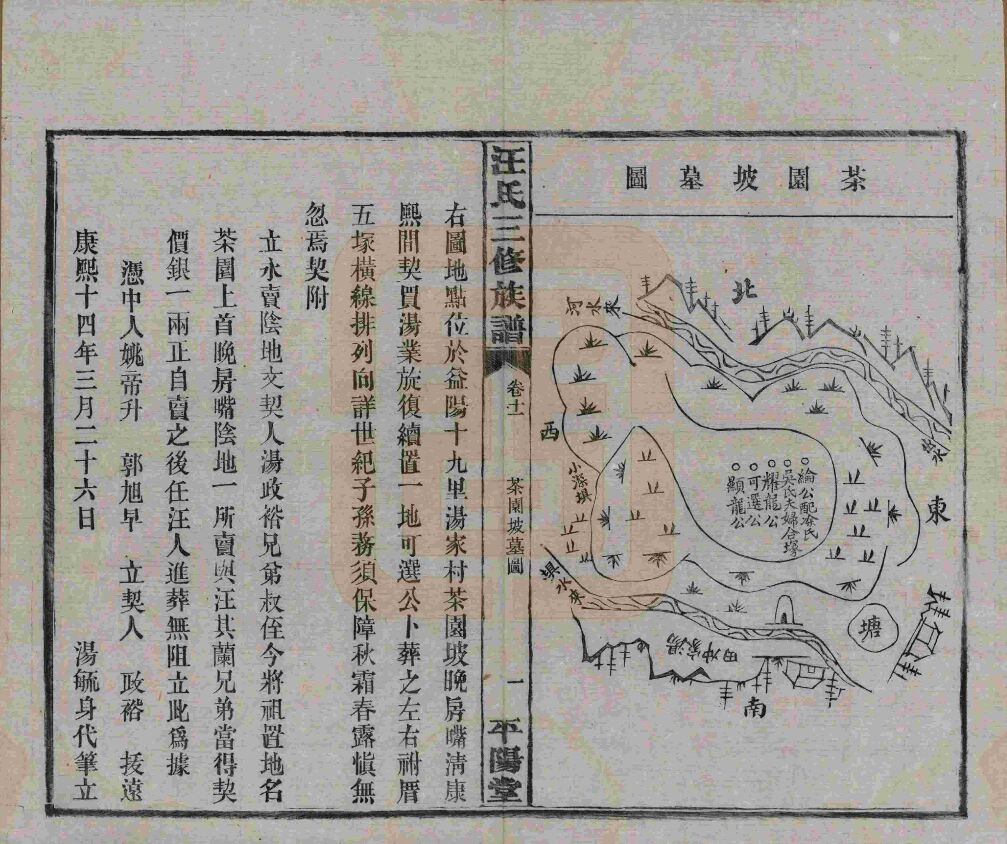 茶園坡墓圖
北
河水來
西
東
水
小深壩
綸公配秦氏
吳氏夫婦合塚
耀龍公
可選公
顯龍公
壩水來
塘
湯家冲田
南
汪氏三修族譜
卷十一
茶園坡墓圖
一
平陽堂
右圖地點位於益陽十九里湯家村茶園坡晚房嘴淸康
熙間契買湯業旋復續置一地可選公卜葬之左右祔厝
五塚橫線排列向詳世紀子孫務須保障秋霜春露愼無
忽焉契附
立永賣陰地文契人湯政裕兄弟叔侄今將祖置地名
茶園上首晚房嘴陰地一所賣與汪其蘭兄弟當得契
價銀一兩正自賣之後任汪人進葬無阻立此爲據
憑中人姚帝升　郭旭早　立契人　政裕　拔遠
康熙十四年三月二十六日　湯毓身代筆立